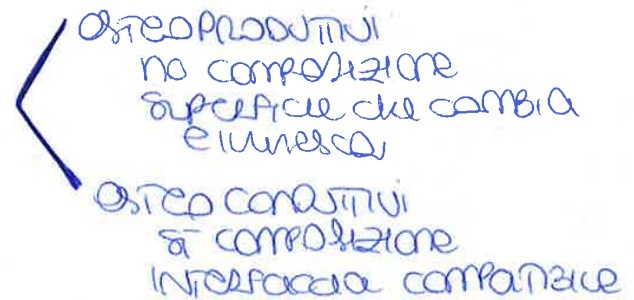 OSTEOPRODUTTIVI
no composizione
superficie che cambia
e innesca
OSTEOCONDUTTIVI
sì composizione
INTERFACCIA compatibile